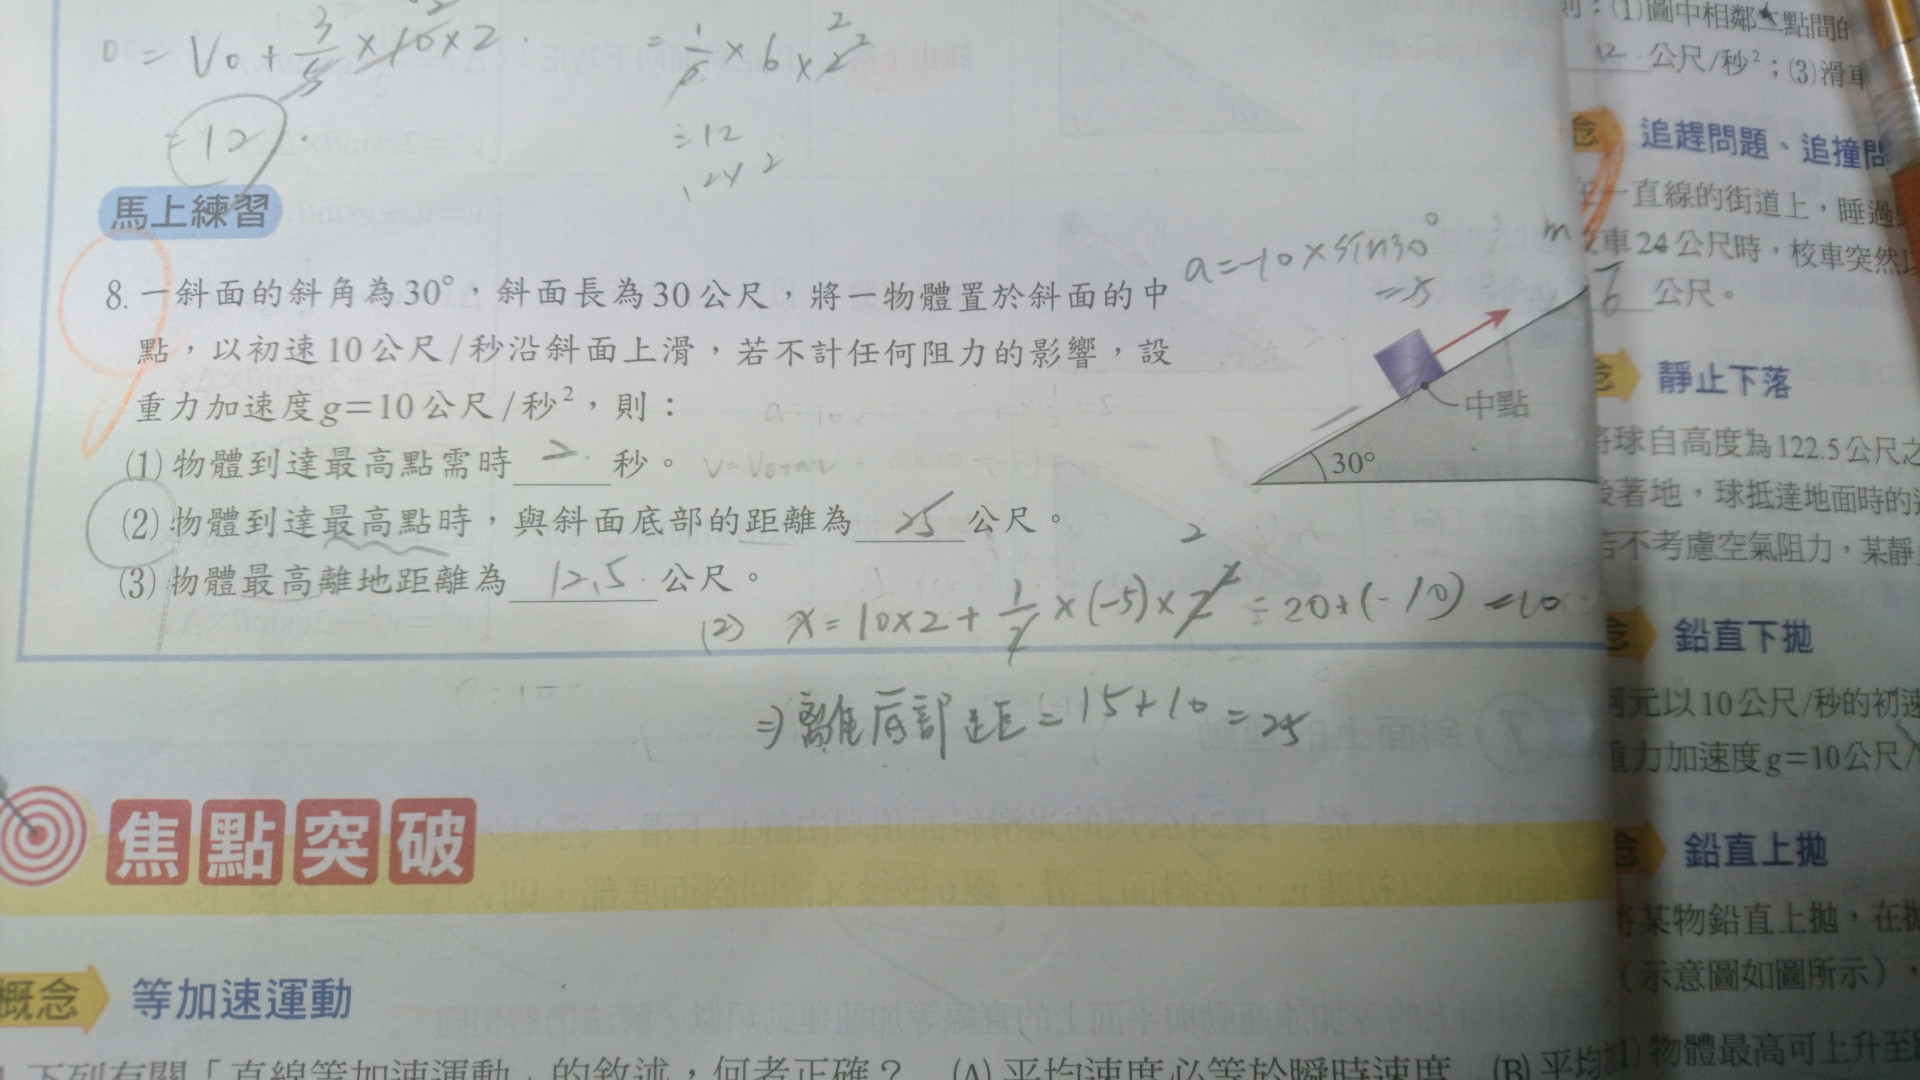 0 = V0 + 3/5 × 10 × 2
= 1/2 × 6 × 2²
= 12
= 12
馬上練習
8. 一斜面的斜角為30°，斜面長為30公尺，將一物體置於斜面的中
點，以初速10公尺/秒沿斜面上滑，若不計任何阻力的影響，設
重力加速度g＝10公尺/秒²，則：
(1) 物體到達最高點需時 2 秒。
(2) 物體到達最高點時，與斜面底部的距離為 25 公尺。
(3) 物體最高離地距離為 12.5 公尺。
a=-10×sin30°
中點
30°
(2) x = 10×2+1/2×(-5)×2² = 20+(-10) =10
⇒ 離底部距 = 15+10 = 25
焦點突破
概念 等加速運動
下列有關「直線等加速運動」的敘述，何者正確？ (A) 平均速度必等於瞬時速度 (B) 平均
(1)圖中相鄰二點間的
12 公尺/秒²；(3)滑車
念 追趕問題、追撞問
一直線的街道上，睡過
車24公尺時，校車突然以
6 公尺。
念 靜止下落
將球自高度為122.5公尺之
後著地，球抵達地面時的速
若不考慮空氣阻力，某靜
念 鉛直下拋
阿元以10公尺/秒的初速
重力加速度g＝10公尺/
念 鉛直上拋
將某物鉛直上拋，在拋
（示意圖如圖所示），
(1) 物體最高可上升至